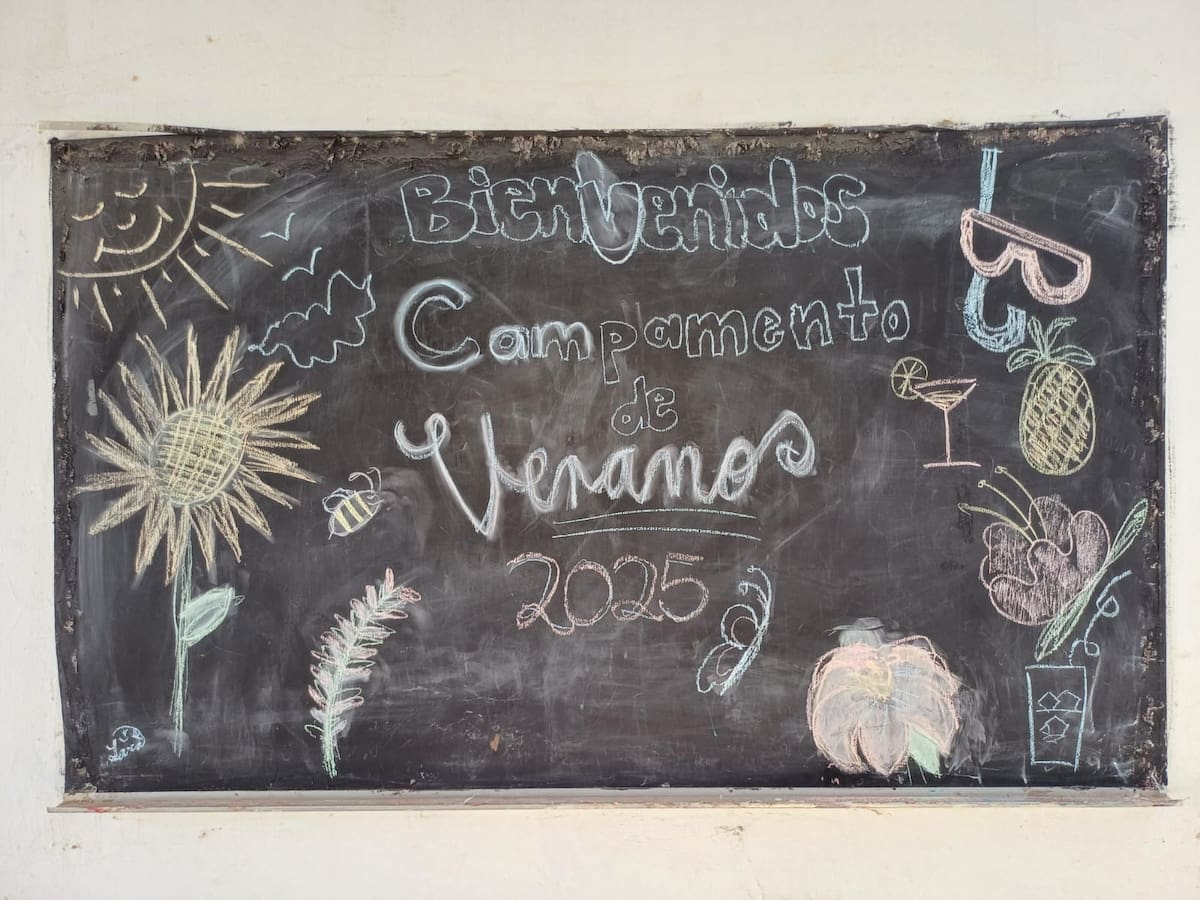 Bienvenidos
Campamento
de
Veranos
2025